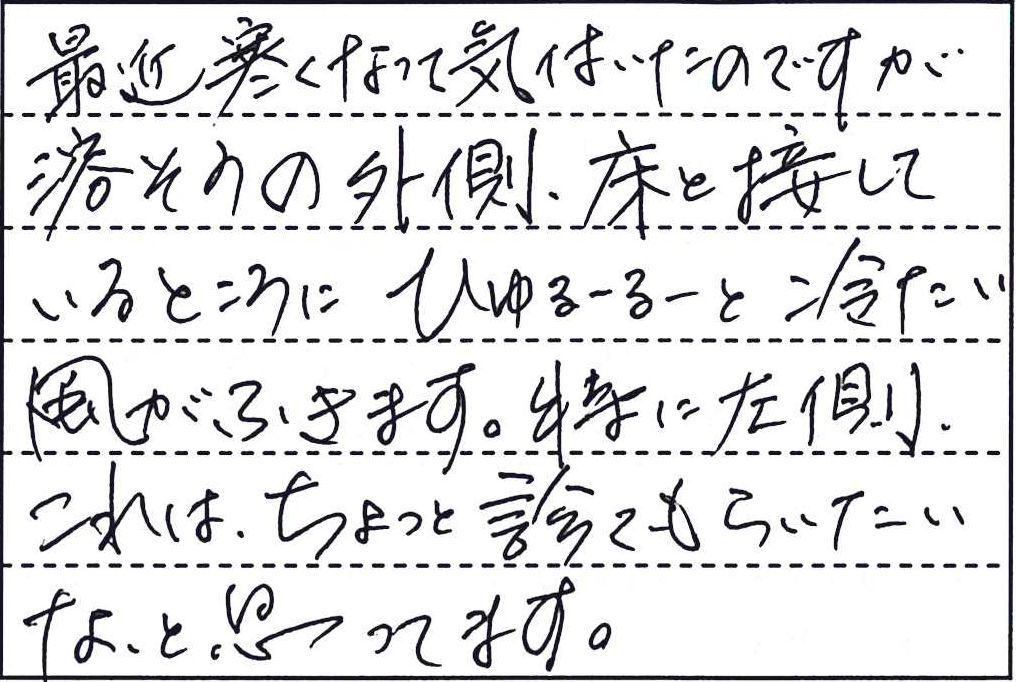 最近寒くなって気付いたのですが
浴そうの外側、床と接して
いるところにひゅるーるーと冷たい
風がふきます。特に左側、
これは、ちょっと診てもらいたい
な、と思ってます。